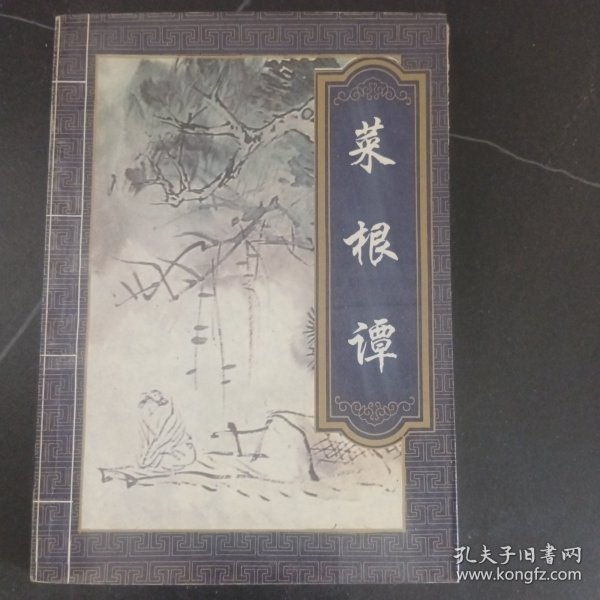 菜根谭
孔夫子旧書网
www.kongfz.com